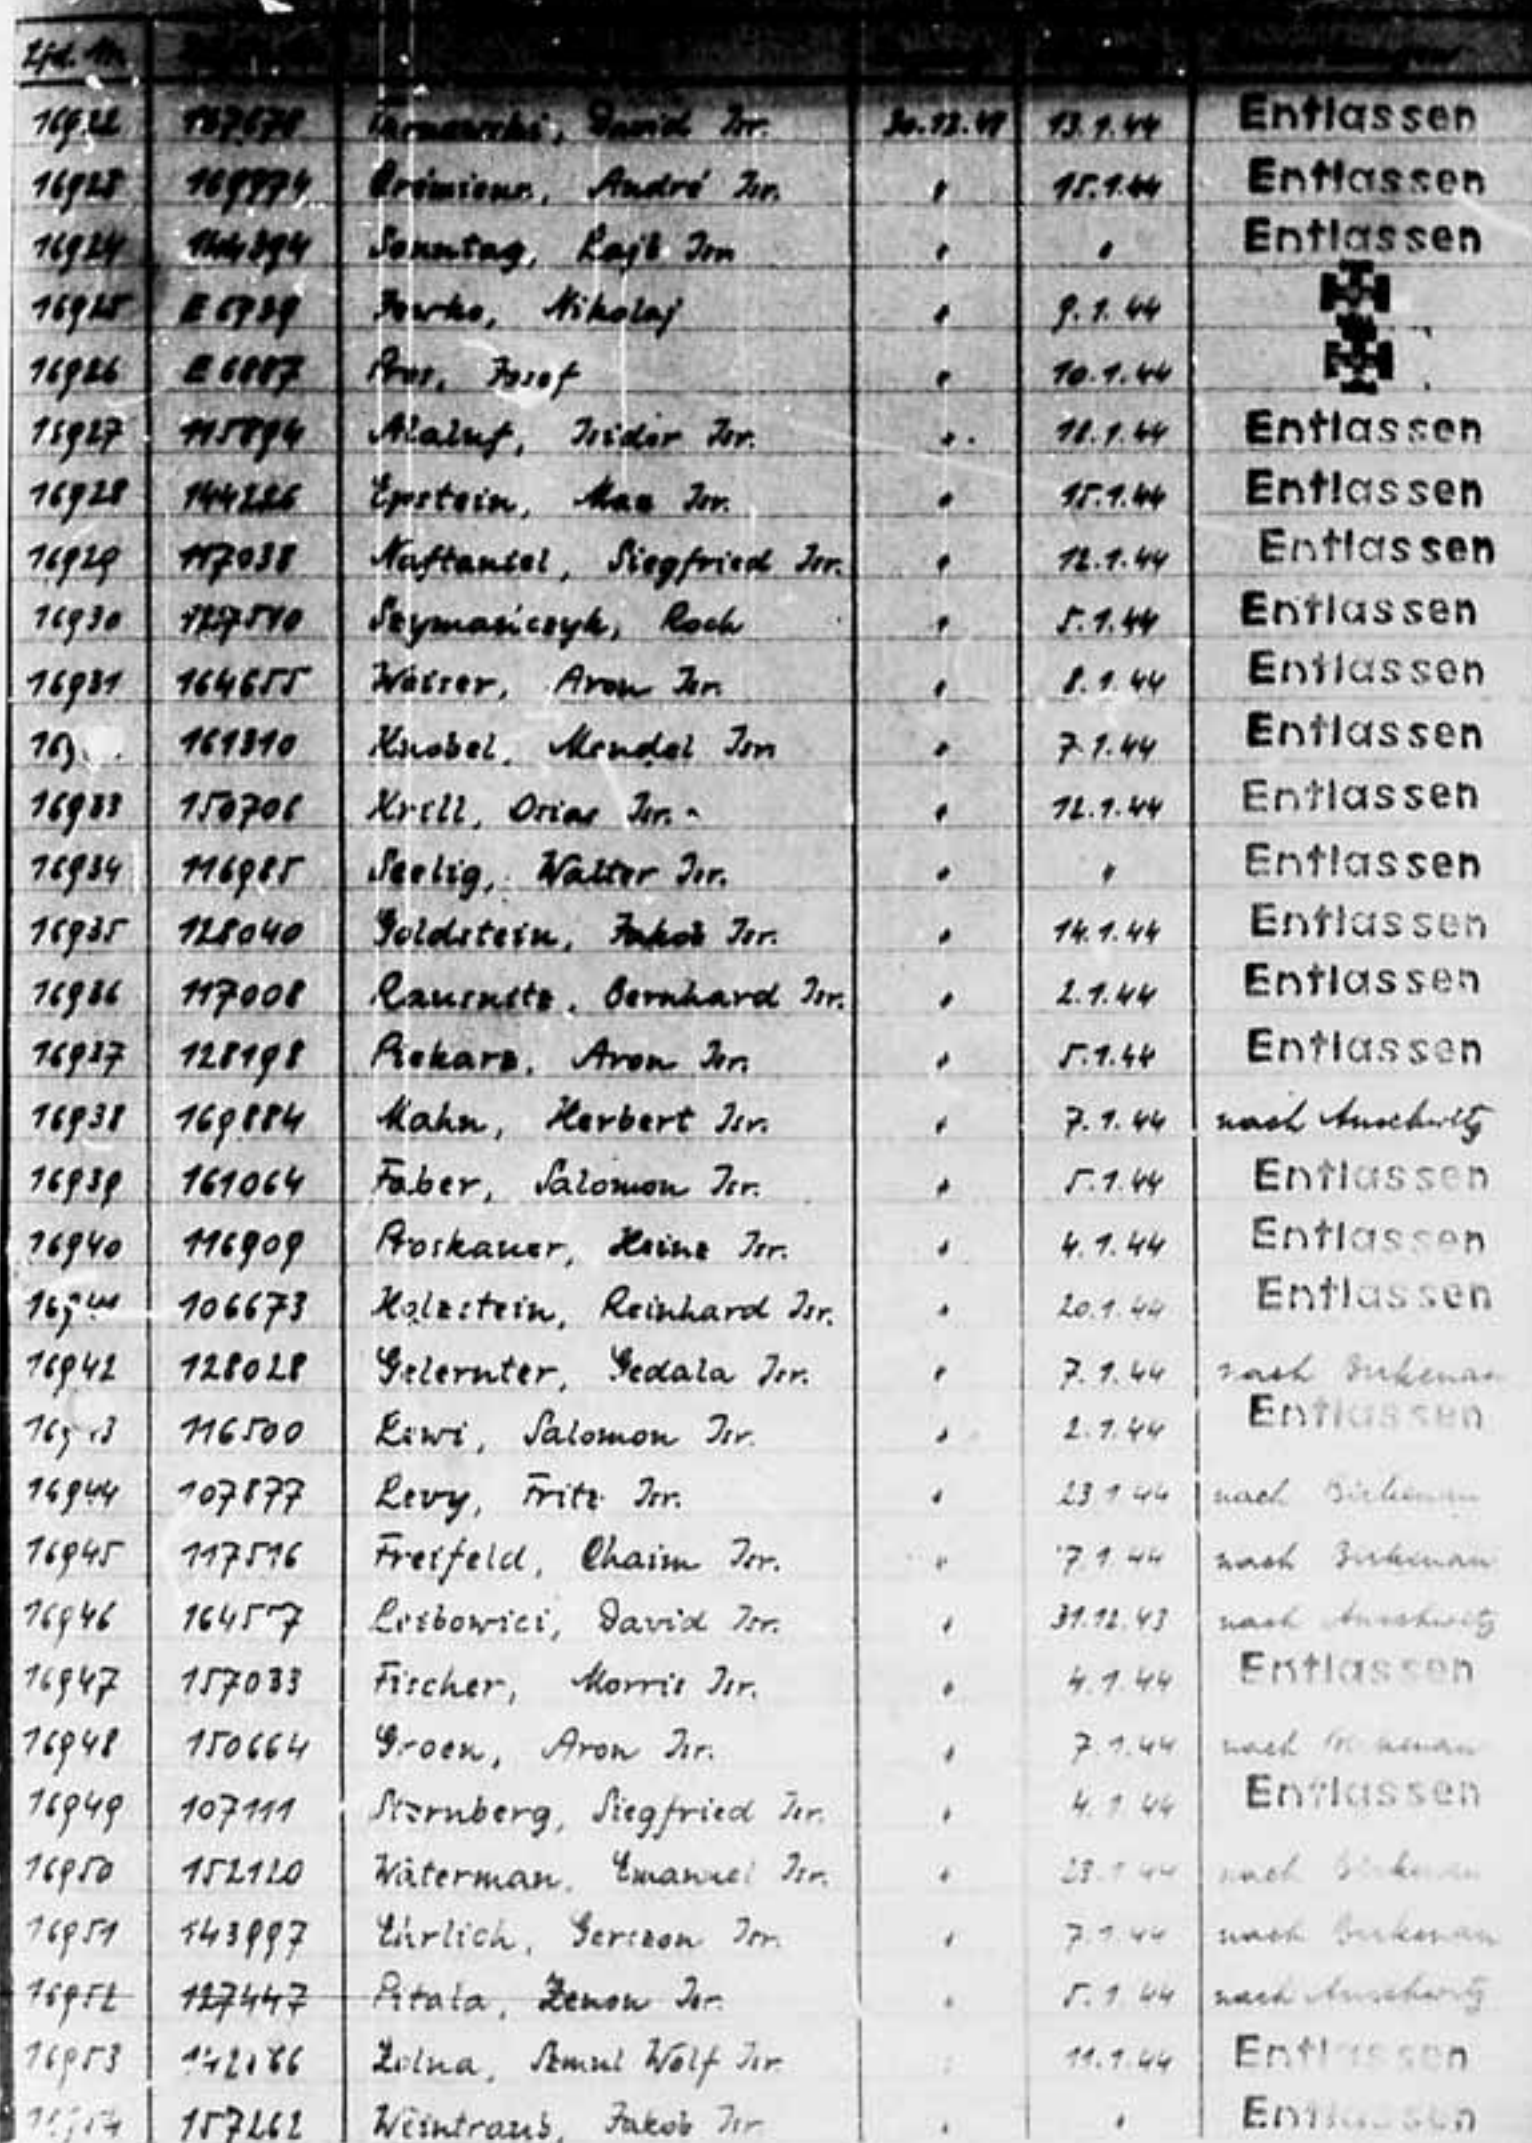 Lfd. Nr.
16922 David Isr. 13.1.44 Entlassen
16923 169974 André Isr. " 15.1.44 Entlassen
16924 Sonntag, Lajb Isr. " " Entlassen
16925 Nikolaj " 9.1.44
16926 Josef " 10.1.44
16927 Alaluf, Isidor Isr. " 18.1.44 Entlassen
16928 Epstein, Max Isr. " 15.1.44 Entlassen
16929 117038 Naftaniel, Siegfried Isr. " 12.1.44 Entlassen
16930 127510 Szymańczyk, Roch " 5.1.44 Entlassen
16931 164655 Aron Isr. " 8.1.44 Entlassen
161310 Knobel, Mendel Isr. " 7.1.44 Entlassen
16933 150706 Krill, Osias Isr. " 12.1.44 Entlassen
16934 116985 Seelig, Walter Isr. " " Entlassen
16935 128040 Goldstein, Jakob Isr. " 14.1.44 Entlassen
16936 117008 Bernhard Isr. " 2.1.44 Entlassen
16937 128198 Piekarz, Aron Isr. " 5.1.44 Entlassen
16938 169884 Mahn, Herbert Isr. " 7.1.44 nach Auschwitz
16939 161064 Faber, Salomon Isr. " 5.1.44 Entlassen
16940 116909 Proskauer, Heinz Isr. " 4.1.44 Entlassen
106673 Holzstein, Reinhard Isr. " 20.1.44 Entlassen
16942 128028 Gelernter, Gedala Isr. " 7.1.44 nach Birkenau
116500 Lewi, Salomon Isr. " 2.1.44 Entlassen
16944 107877 Levy, Fritz Isr. " 23.1.44 nach Birkenau
16945 117516 Freifeld, Chaim Isr. " 7.1.44 nach Birkenau
16946 Leibowici, David Isr. " 31.12.43 nach Auschwitz
16947 157033 Fischer, Morris Isr. " 4.1.44 Entlassen
16948 150664 Groen, Aron Isr. " 7.1.44 nach Birkenau
16949 107111 Sternberg, Siegfried Isr. " 4.1.44 Entlassen
16950 152120 Waterman, Emanuel Isr. " 23.1.44 nach Birkenau
16951 143997 Ehrlich, Gerszon Isr. " 7.1.44 nach Birkenau
16952 127447 Pitala, Zenon Isr. " 5.1.44 nach Auschwitz
16953 Zolna, Szmul Wolf Isr. 11.1.44 Entlassen
157262 Weintraub, Jakob Isr. " " Entlassen